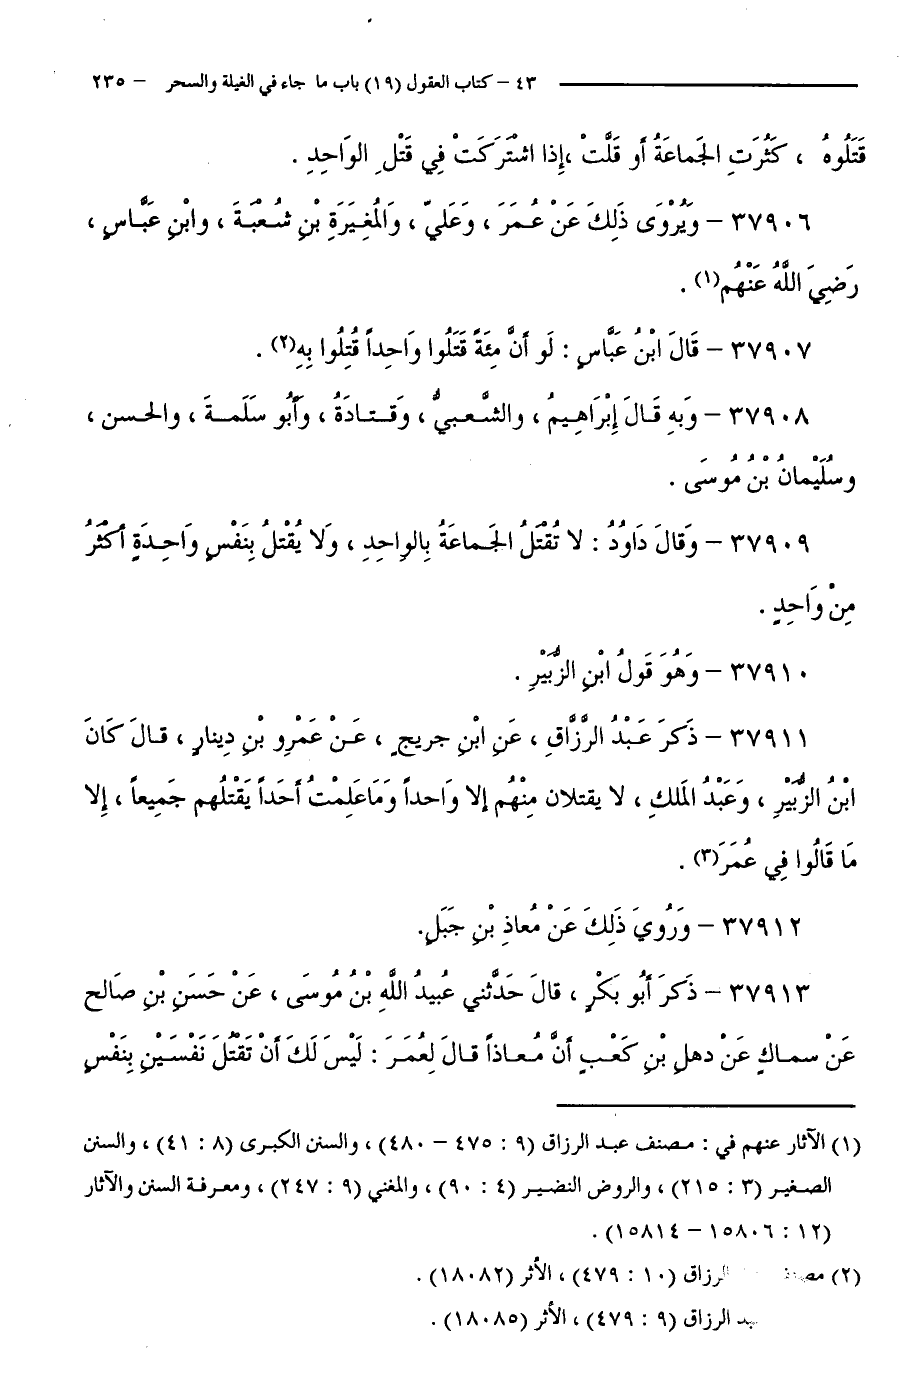 ٤٣ – كتاب العقول (١٩) باب ما جاء في الغيلة والسحر – ٢٣٥
قَتَلُوهُ ، كَثُرَتِ الجَماعَةُ أو قَلَّتْ ،إِذا اشْتَرَكَتْ فِي قَتْلِ الوَاحِدِ .
٣٧٩٠٦ – وَيُرْوَى ذَلِكَ عَنْ عُمَرَ ، وَعَلِيّ ، وَالمُغِيَرَةِ بْنِ شُعْبَةَ ، وابْنِ عَبَّاسٍ ،
رَضِيَ اللَّهُ عَنْهُم(١) .
٣٧٩٠٧ – قَالَ ابْنُ عَبَّاسٍ : لَو أَنَّ مِئَةً قَتَلُوا وَاحِداً قُتِلُوا بِهِ(٢) .
٣٧٩٠٨ – وَبِهِ قَالَ إِبْرَاهِيمُ ، والشَّعبيُّ ، وَقتادَةُ ، وَأَبُو سَلَمةَ ، والحسن ،
وسُلَيْمانُ بْنُ مُوسَى .
٣٧٩٠٩ – وَقالَ دَاوُدُ : لا تُقْتَلُ الجَماعَةُ بِالواحِدِ ، وَلا يُقْتلُ بِنَفْسٍ وَاحِدَةٍ أكْثَرُ
مِنْ وَاحِدٍ .
٣٧٩١٠ – وَهُوَ قَولُ ابْنِ الزُّبَيْرِ .
٣٧٩١١ – ذَكَرَ عَبْدُ الرَّزَّاقِ ، عَنِ ابْنِ جريجٍ ، عَنْ عَمْرِو بْنِ دِينارٍ ، قالَ كَانَ
ابْنُ الزُّبَيْرِ ، وَعَبْدُ المَلكِ ، لا يقتلان مِنْهُم إلا وَاحداً وَمَاعَلِمْتُ أَحَداً يَقْتلُهم جَمِيعاً ، إِلا
مَا قَالُوا فِي عُمَرَ(٣) .
٣٧٩١٢ – وَرُوِيَ ذَلِكَ عَنْ مُعاذِ بْنِ جَبَلٍ.
٣٧٩١٣ – ذَكَرَ أَبُو بَكْرٍ ، قالَ حَدَّثَني عُبيدُ اللَّهِ بْنُ مُوسَى ، عَنْ حَسَنِ بْنِ صَالح
عَنْ سماكٍ عَنْ دهلِ بْنِ كَعْبٍ أَنَّ مُعاذاً قالَ لِعُمَرَ : لَيْسَ لَكَ أَنْ تَقْتُلَ نَفْسَيْنِ بِنَفْسٍ
(١) الآثار عنهم في : مصنف عبد الرزاق (٩ : ٤٧٥ – ٤٨٠) ، والسنن الكبرى (٨ : ٤١) ، والسنن
الصغير (٣ : ٢١٥) ، والروض النضير (٤ : ٩٠) ، والمغني (٩ : ٢٤٧) ، ومعرفة السنن والآثار
(١٢ : ١٥٨٠٦ – ١٥٨١٤) .
(٢) الرزاق (١٠ : ٤٧٩) ، الأثر (١٨٠٨٢) .
الرزاق (٩ : ٤٧٩) ، الأثر (١٨٠٨٥) .